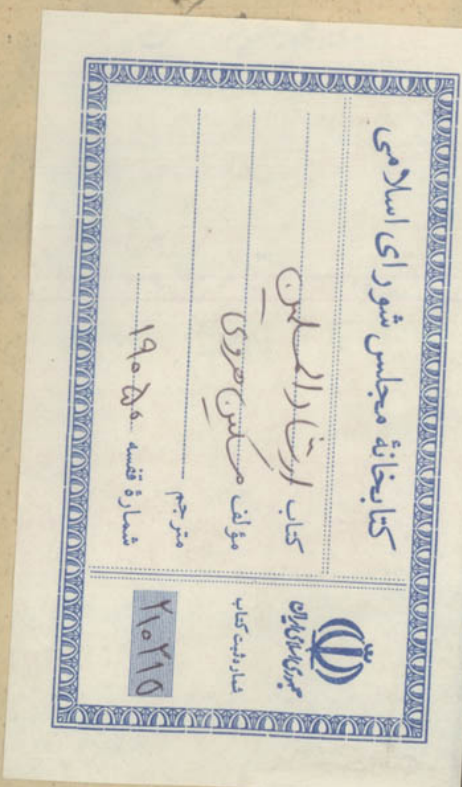 کتابخانهٔ مجلس شورای اسلامی
کتاب ارشاد المسلمین
مؤلف مسکین هروی
مترجم
شمارهٔ قفسه ۱۹۰۵۰
جمهوری اسلامی ایران
شماره ثبت کتاب
۲۱۰۲۱۵